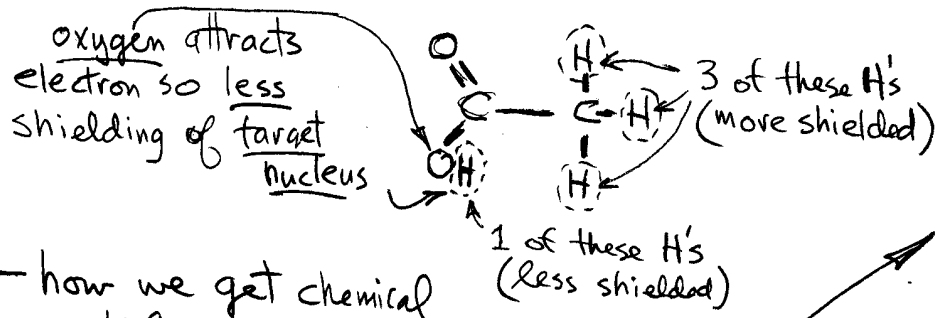 oxygen attracts
electron so less
shielding of target
nucleus
O
C
C
OH
H
H
H
3 of these H's
(more shielded)
1 of these H's
(less shielded)
– how we get chemical